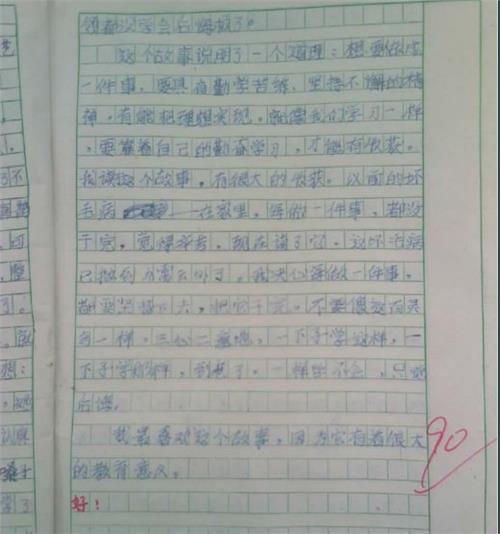 领都没学会后悔极了。
这个故事说明了一个道理：想要做成
一件事，要具有勤学苦练、坚持不懈的精
神，有能把理想实现。就像我们学习一样
，要靠着自己的勤奋学习，才能有收获。
我读这个故事，有很大的收获。以前的坏
毛病 一在家里，每做一件事，都没
干完，觉得辛苦，现在读了它，这坏毛病
已抛到九霄云外了。我决心每做一件事，
都要坚持下去，把它干完。不要像
鸟一样，三心二意地，一下子学这样，一
下子学那样，到极了。一样学不会，只好
后悔。
我最喜欢这个故事，因为它有着很大
的教育意义。
好！
90